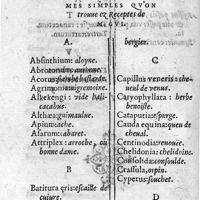 MES SIMPLES QV'ON
trouue es Receptes de
M. GVL.
A.
Absinthium: aloyne.
Abrotonum: auronne.
Acorus:
Agrimonia: aigremoine.
Alkekengi: vide hali-
cacabus.
Althæa: guimaulue.
Apium: ache.
Asarum: abaret.
Attriplex: arroche, ou
bonne dame.
B
Batitura æris: escaille de
cuiure.
bergier.
C
Capillus veneris: che-
ueul de venus.
Caryophyllata: herbe
benoiste.
Cataputia: espurge.
Cauda equina: queu de
cheual.
Centinodia: renouée.
Chelidonia: chelidoine.
Consolida: consoulde.
Crassula, orpin.
Cyperus: souchet.
D